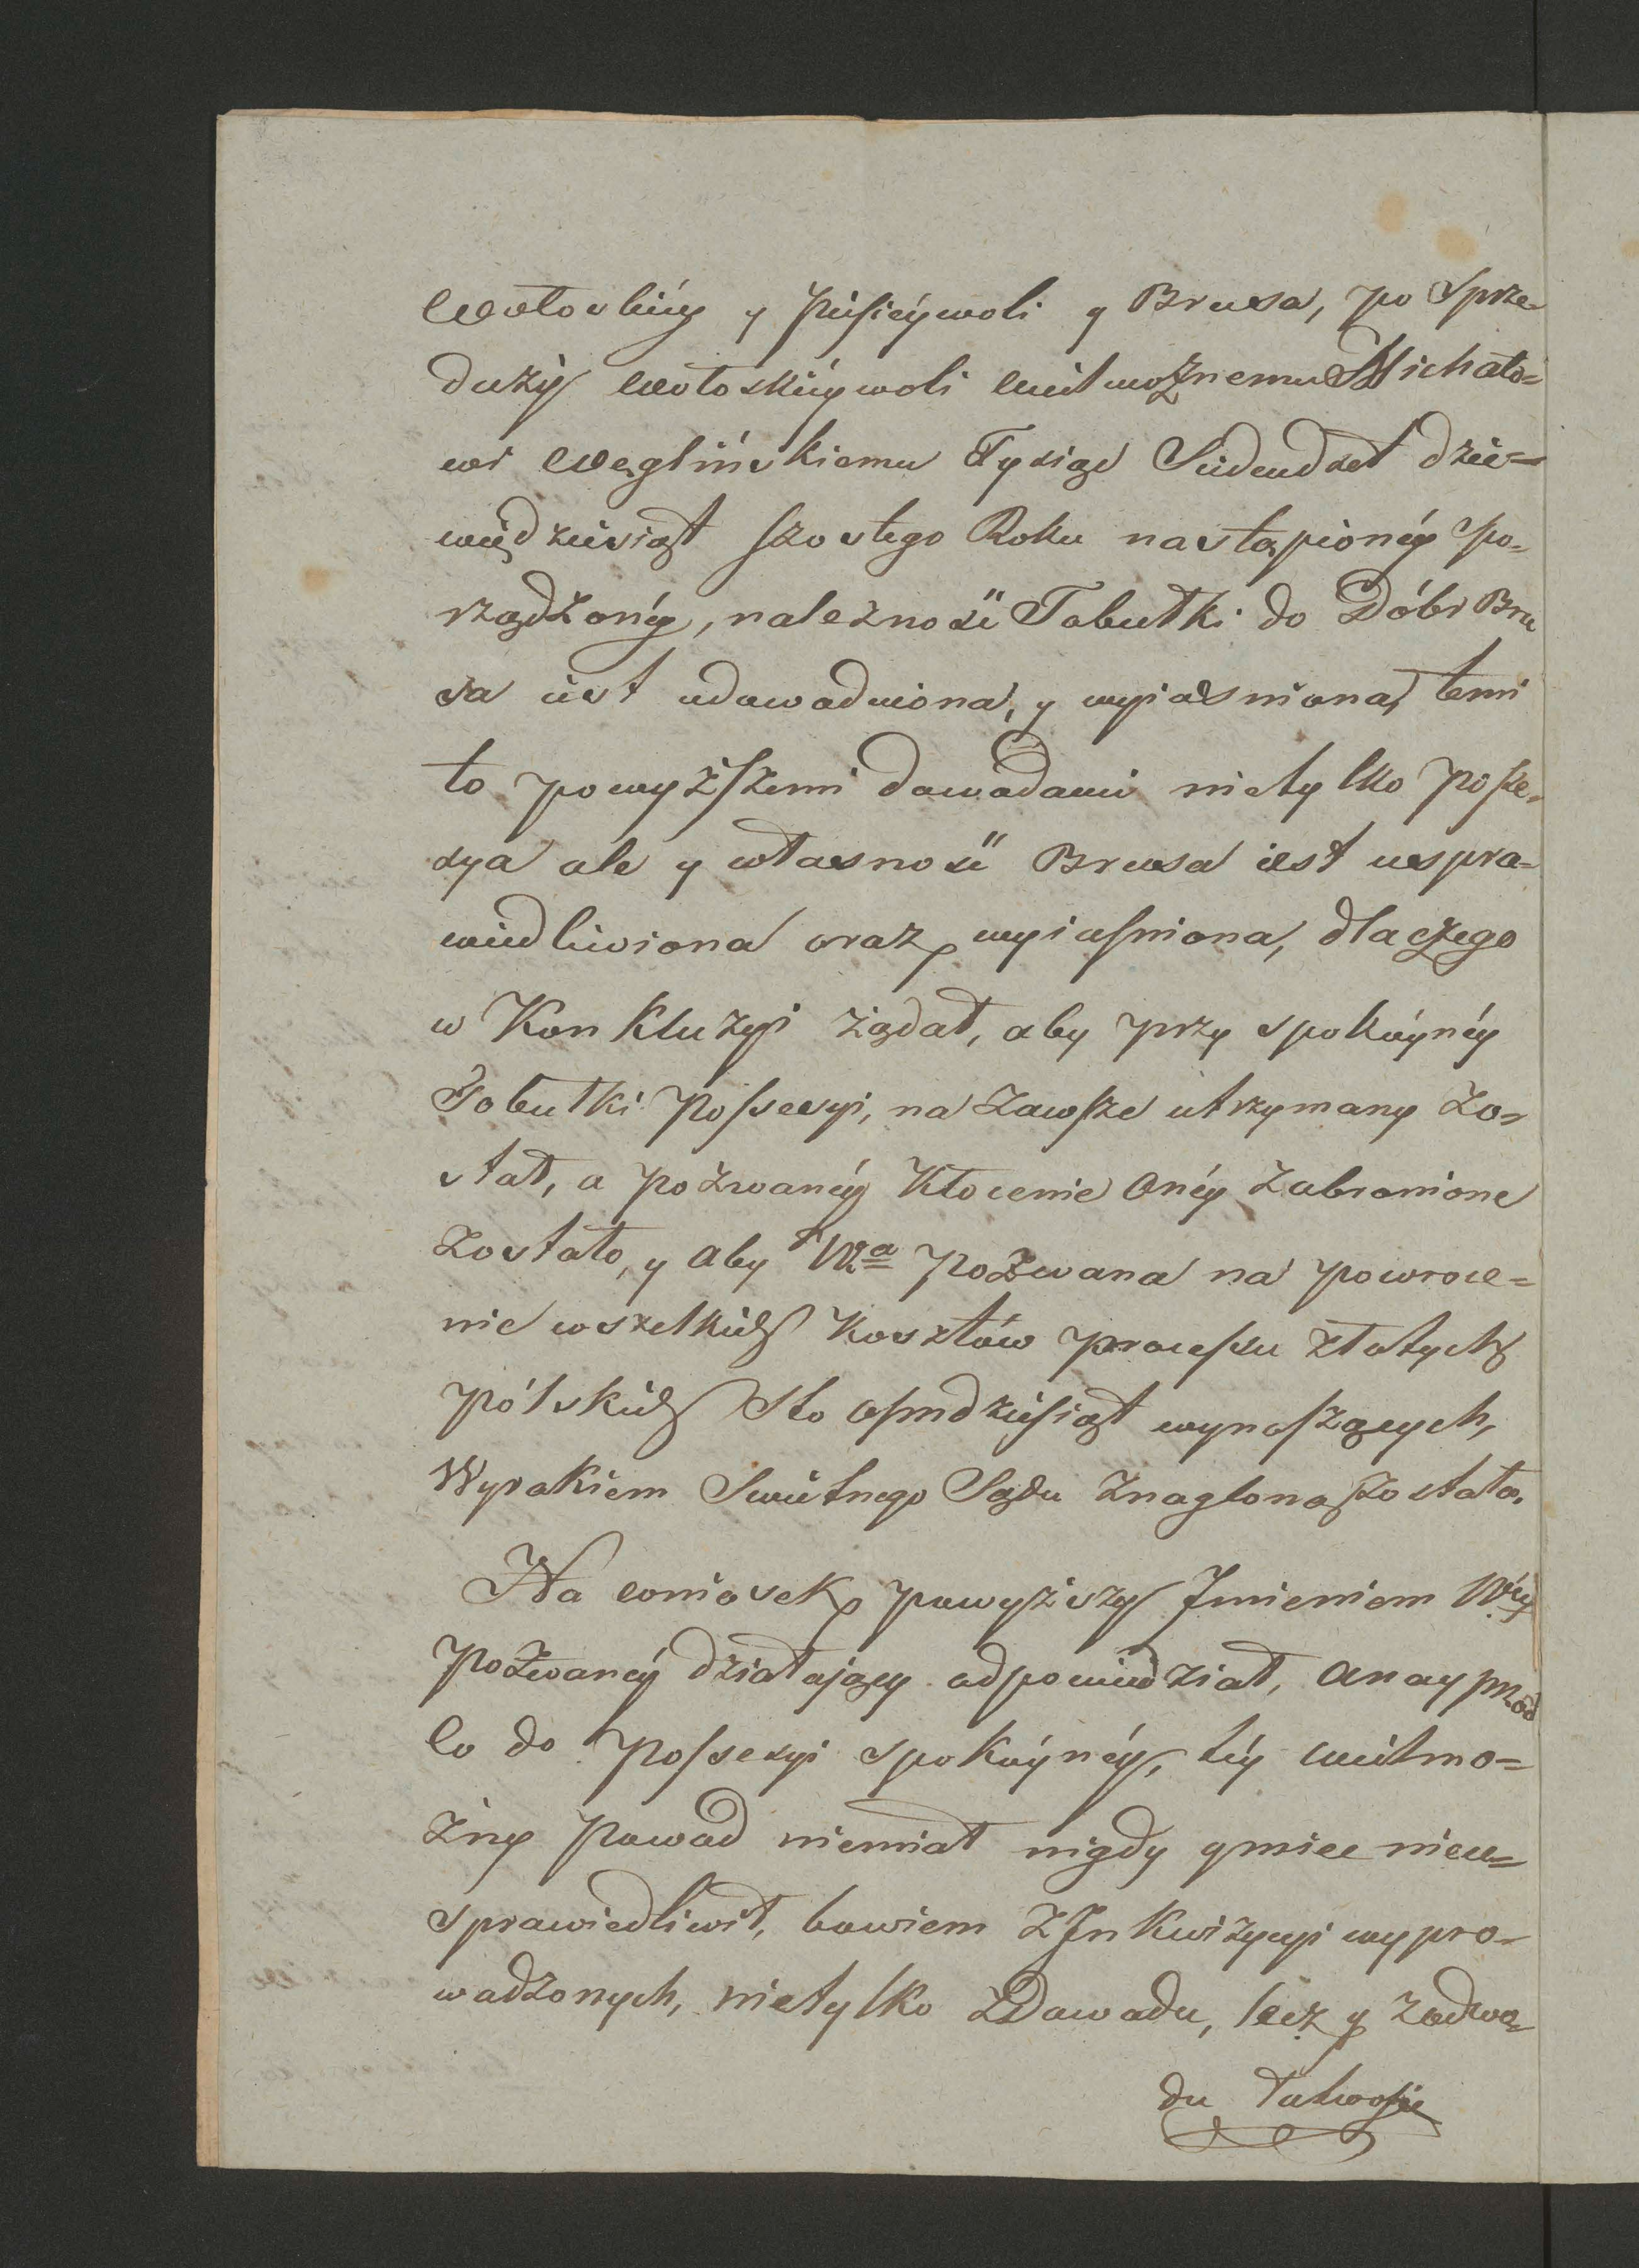 Wołoskiéy y Pusiéywoli y Brusa, po Sprze-
daży Wołoskiéywoli Wielmożnemu Michało-
wi Węglińskiemu Tysiąc Siedmdset dzie-
więdziesiąt szostego Roku nastąpionéy po-
rządzonéy, należność Tobułki do Dóbr Bru
sa iest udowodniona, y wyiasniona, temi
to powyższemi dowodami nietylko posse-
sya ale y własność Brusa iest uspra-
wiedliwiona oraz wyiasniona, dlaczego
w Konkluzyi żądał, aby przy spokóynéy
Tobułki Possesyi, na zawsze utrzymany zo-
stał, a Pozwanéy Kłocenie onéy zabronione
zostało, y aby Wa Pozwana na powroce-
nie wszelkich kosztów processu złotych
pólskich Sto osmdziesiąt wynoszących,
Wyrokiem Swietnego Sądu znaglona została.
Na wniosek powyższy Jmieniem Wéy
Pozwanéy działający odpowiedział, a nayprzód
co do Possesyi spokóynéy, téy Wielmo-
żny Powod niemiał nigdy y miec nieu-
sprawiedliwił, bowiem z Jnkwizycyi wypro-
wadzonych, nietylko z Dowodu, lecz y z odwo-
du łatwosię